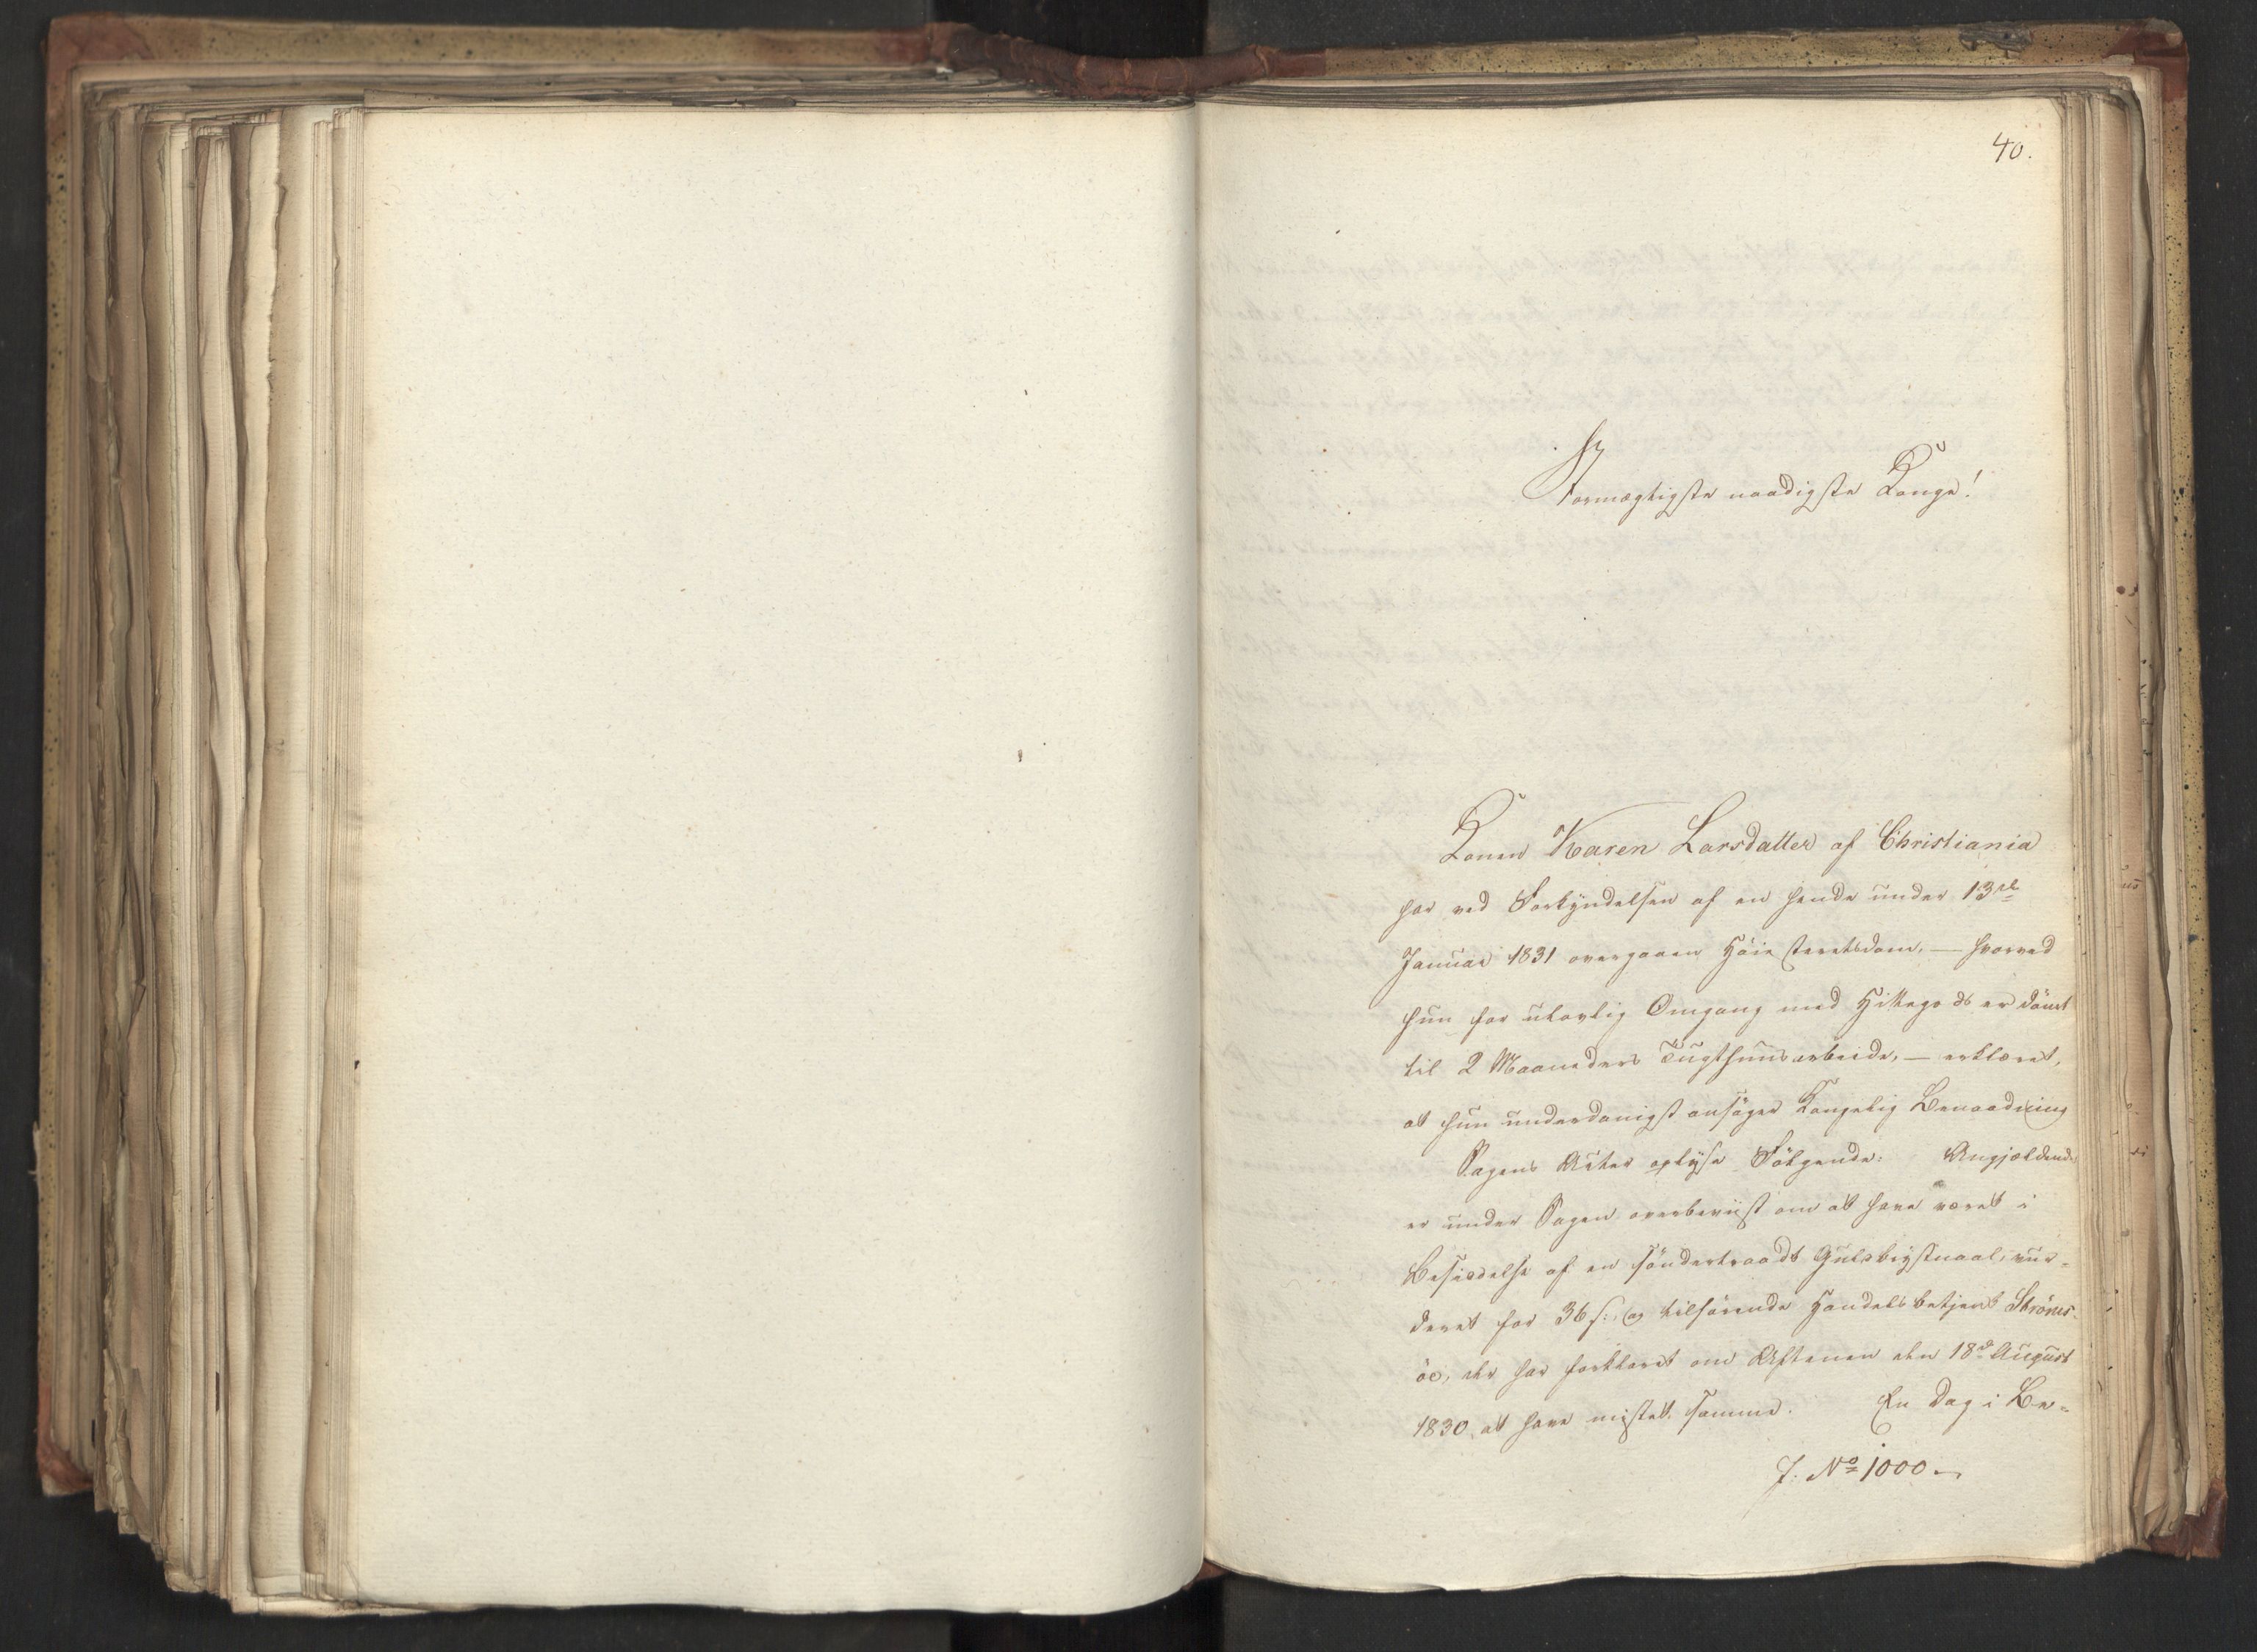 40.
Stormægtigste naadigste Konge!
Konen Karen Larsdatter af Christiania
har ved Forkyndelsen af en hende under 13de
Januar 1831 overgaaen Höiesteretsdom, — hvorved
hun for ulovlig Omgang med Hittegods er dömt
til 2 Maaneders Tugthuusarbeide, — erklæret,
at hun underdanigst ansöger Kongelig Benaadning
Sagens Akter oplyse Fölgende: Angjældende
er under Sagen overbeviist om at have været i
Besiddelse af en sönderbraadt Guldbrystnaal, vur-
deret for 36 s:, og tilhörende Handelsbetjent Ströms-
öe, der har forklaret om Aftenen den 18de August
1830, at have mistet samme. En Dag i Be-
J: No 1000.